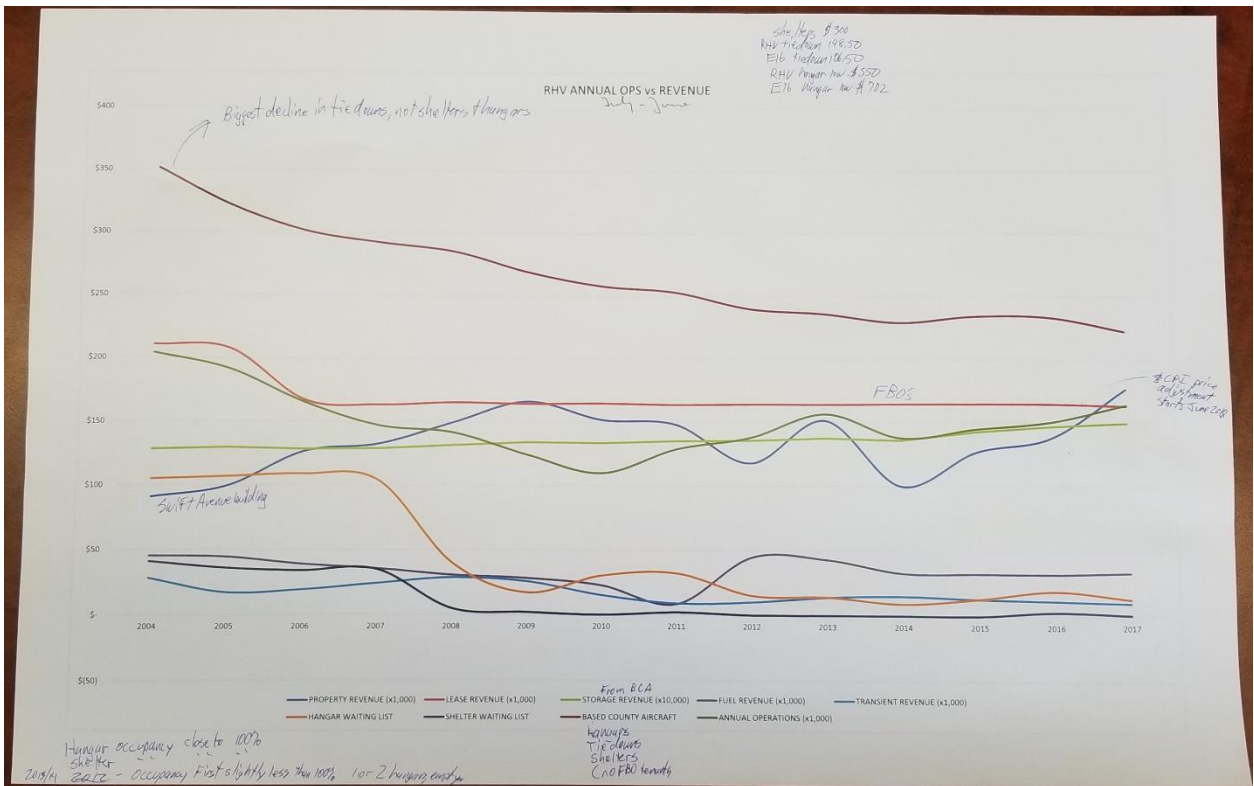 shelters $300
RHV tiedown 148.50
E16 tiedown 106.50
RHV hangar low $550
E16 hangar low $702
RHV ANNUAL OPS vs REVENUE
July - June
Biggest decline in tiedowns, not shelters & hangars
$400
$350
$300
$250
$200
$150
$100
$50
$-
$(50)
FBO's
CPI price
adjustment
starts June 2018
Swift Avenue building
2004 2005 2006 2007 2008 2009 2010 2011 2012 2013 2014 2015 2016 2017
From BCA
PROPERTY REVENUE (x1,000) LEASE REVENUE (x1,000) STORAGE REVENUE (x10,000) FUEL REVENUE (x1,000) TRANSIENT REVENUE (x1,000)
HANGAR WAITING LIST SHELTER WAITING LIST BASED COUNTY AIRCRAFT ANNUAL OPERATIONS (x1,000)
Hangars
Tiedowns
Shelters
(no FBO tenants
Hangar occupancy close to 100%
Shelter " " "
2012 - Occupancy First slightly less than 100% 1 or 2 hangars empty